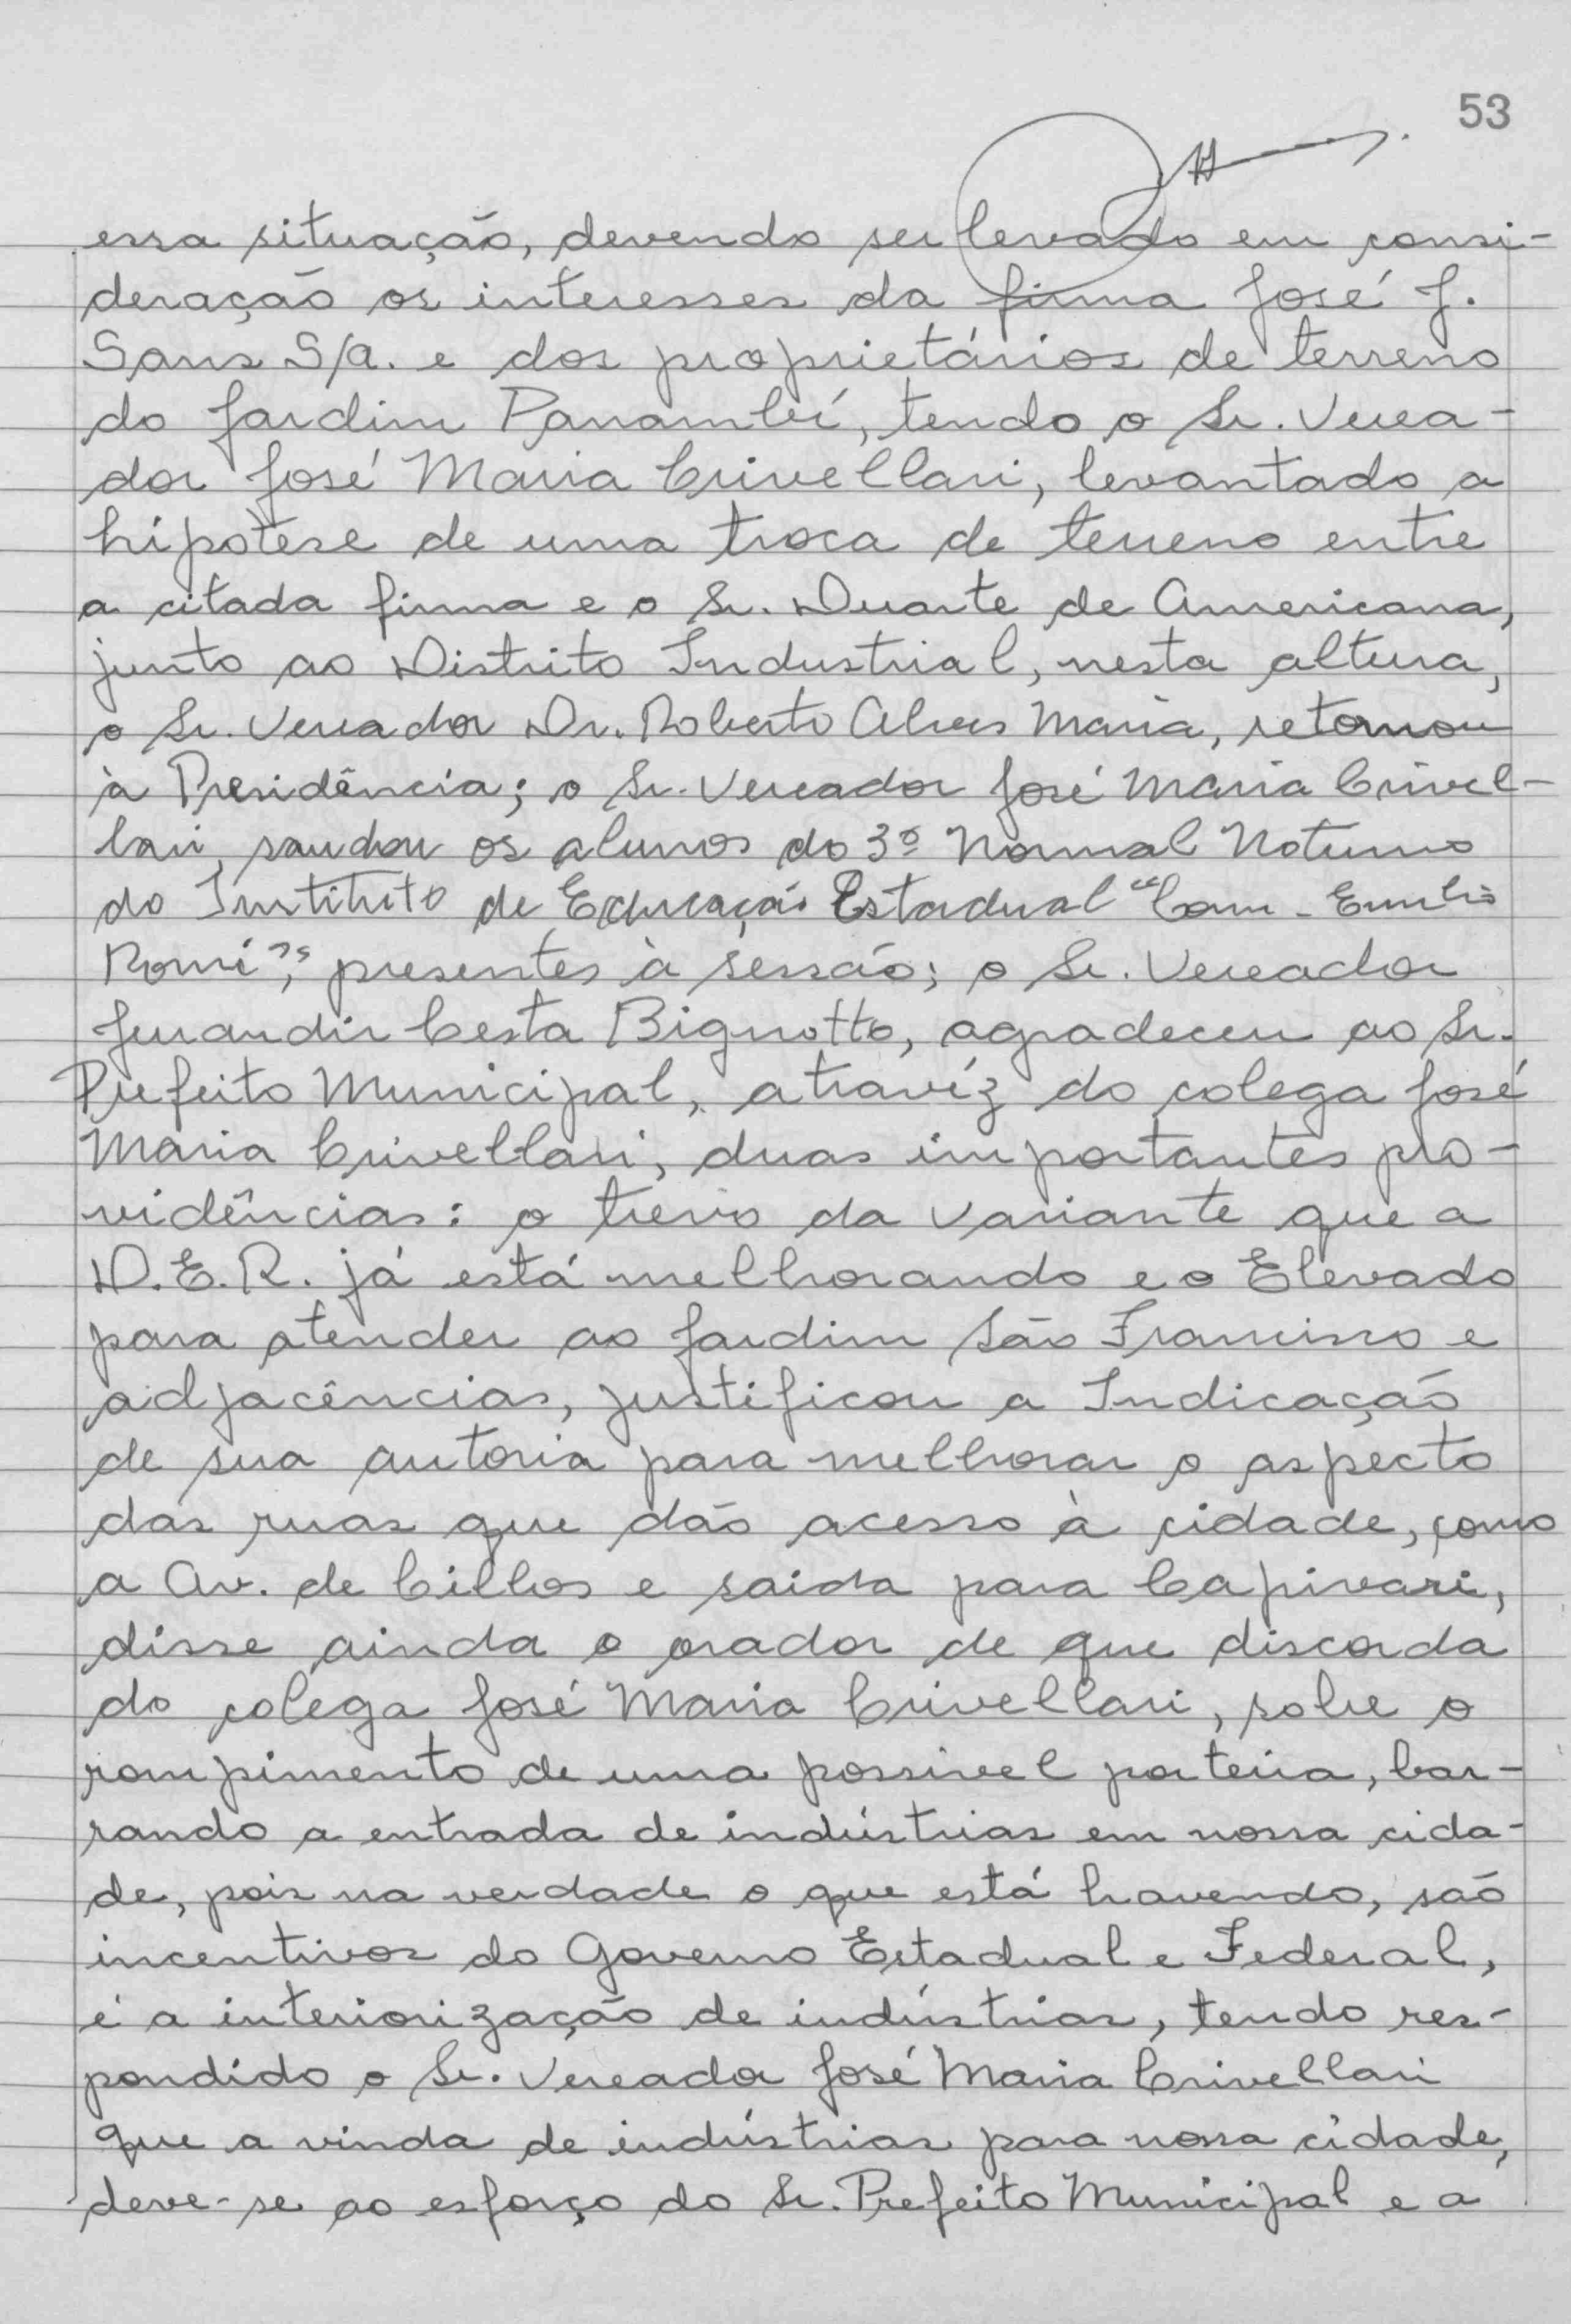 53
essa situação, devendo ser levado em consi-
deração os interesses da firma José J.
Sans S/A. e dos proprietários de terreno
do Jardim Panambí, tendo o Sr. Verea-
dor José Maria Crivellari, levantado a
hipótese de uma troca de terreno entre
a citada firma e o Sr. Duarte de Americana,
junto ao Distrito Industrial, nesta altura,
o Sr. Vereador Dr. Roberto Alves Maria, retornou
à Presidência; o Sr. Vereador José Maria Crivel-
lari, saudou os alunos do 3º Normal Noturno
do Instituto de Educação Estadual "Com. Emilio
Romi", presentes à sessão; o Sr. Vereador
Jurandir Cesta Bignotto, agradeceu ao Sr.
Prefeito Municipal, atravéz do colega José
Maria Crivellari, duas importantes pro-
vidências: o trevo da variante que a
D.E.R. já está melhorando e o Elevado
para atender ao Jardim São Francisco e
adjacências, justificou a Indicação
de sua autoria para melhorar o aspecto
das ruas que dão acesso à cidade, como
a Av. de Cillos e saida para Capivari,
disse ainda o orador de que discorda
do colega José Maria Crivellari, sobre o
rompimento de uma possivel porteira, bar-
rando a entrada de indústrias em nossa cida-
de, pois na verdade o que está havendo, são
incentivos do Governo Estadual e Federal,
é a interiorização de indústrias, tendo res-
pondido o Sr. Vereador José Maria Crivellari
que a vinda de indústrias para nossa cidade,
deve-se ao esforço do Sr. Prefeito Municipal e a